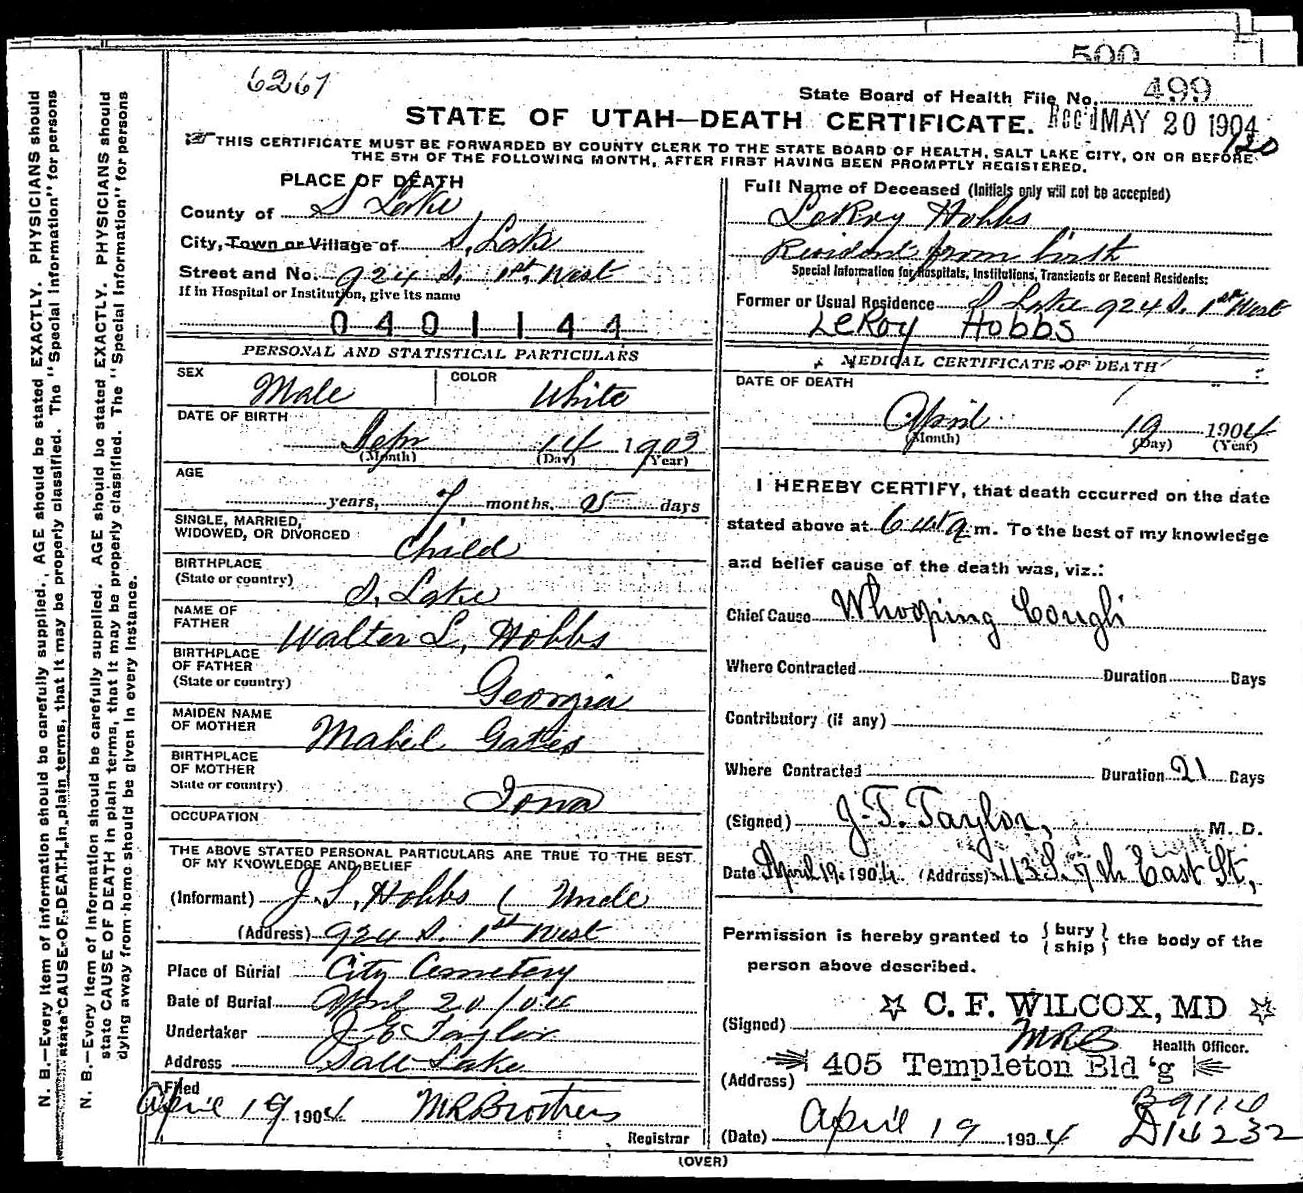 500
6267
State Board of Health File No. 499
STATE OF UTAH—DEATH CERTIFICATE. Rec'd MAY 20 1904
THIS CERTIFICATE MUST BE FORWARDED BY COUNTY CLERK TO THE STATE BOARD OF HEALTH, SALT LAKE CITY, ON OR BEFORE
THE 5TH OF THE FOLLOWING MONTH, AFTER FIRST HAVING BEEN PROMPTLY REGISTERED.
N. B.—Every item of information should be carefully supplied. AGE should be stated EXACTLY. PHYSICIANS should
state CAUSE OF DEATH in plain terms, that it may be properly classified. The "Special Information" for persons
N. B.—Every item of information should be carefully supplied. AGE should be stated EXACTLY. PHYSICIANS should
state CAUSE OF DEATH in plain terms, that it may be properly classified. The "Special Information" for persons
dying away from home should be given in every instance.
PLACE OF DEATH
County of S Lake
City, Town or Village of S. Lake
Street and No. 924 S. 1st West
If in Hospital or Institution, give its name
0401144
PERSONAL AND STATISTICAL PARTICULARS
SEX Male COLOR White
DATE OF BIRTH
Sep 14 1903
(Month) (Day) (Year)
AGE
years, 7 months, 5 days
SINGLE, MARRIED,
WIDOWED, OR DIVORCED Child
BIRTHPLACE
(State or country) S. Lake
NAME OF
FATHER Walter L. Hobbs
BIRTHPLACE
OF FATHER
(State or country) Georgia
MAIDEN NAME
OF MOTHER Mabel Gates
BIRTHPLACE
OF MOTHER
State or country) Iowa
OCCUPATION
THE ABOVE STATED PERSONAL PARTICULARS ARE TRUE TO THE BEST
OF MY KNOWLEDGE AND BELIEF
(Informant) J. S. Hobbs ( Uncle
(Address) 924 S. 1st West
Place of Burial City Cemetery
Date of Burial April 20/04
Undertaker J E Taylor
Address Salt Lake
Filed
April 19 1904 M R Brothers
Registrar
Full Name of Deceased (Initials only will not be accepted)
LeRoy Hobbs
Resident from birth
Special Information for Hospitals, Institutions, Transients or Recent Residents:
Former or Usual Residence S Lake 924 S. 1st West
LeRoy Hobbs
MEDICAL CERTIFICATE OF DEATH
DATE OF DEATH
April 19 1904
(Month) (Day) (Year)
I HEREBY CERTIFY, that death occurred on the date
stated above at 6 a m. To the best of my knowledge
and belief cause of the death was, viz.:
Chief Cause Whooping Cough
Where Contracted Duration Days
Contributory (if any)
Where Contracted Duration 21 Days
(Signed) J. T. Taylor, M. D.
Date April 19. 1904. (Address) 113 S. 7th East St,
Permission is hereby granted to { bury } the body of the
{ ship }
person above described.
(Signed) C. F. WILCOX, MD
MRB Health Officer.
(Address) 405 Templeton Bld'g
B 9114
D 14232
(Date) April 19 1904
(OVER)